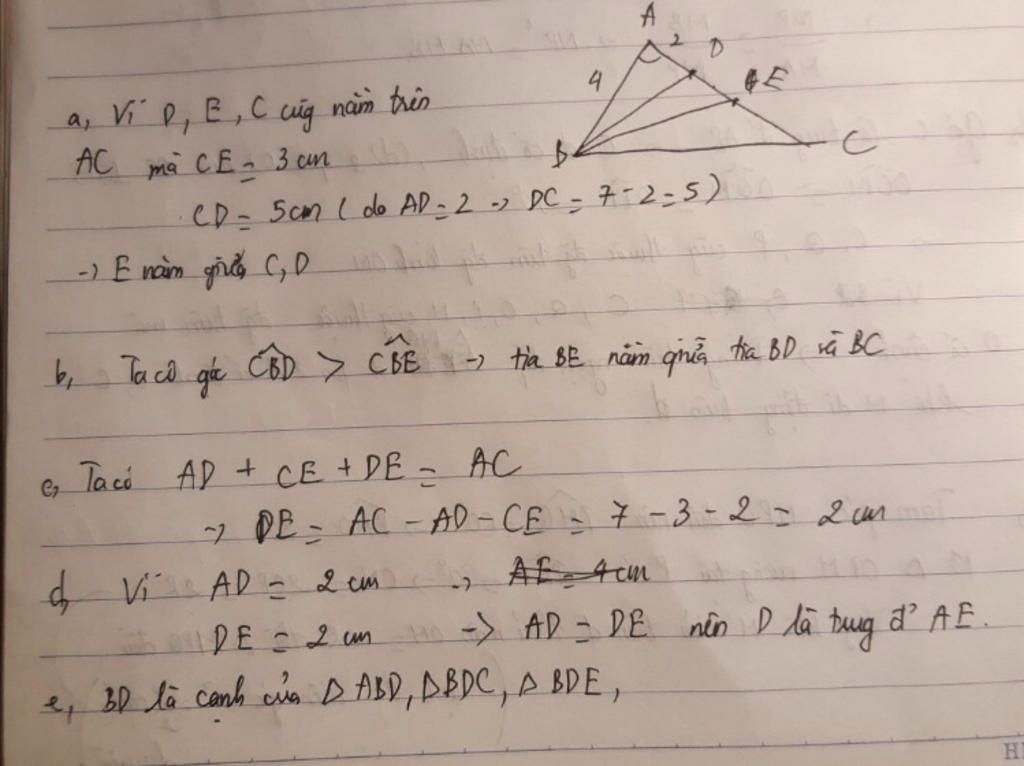 A
2
D
4
E
B
C
a, Vì D, E, C cùg nằm trên
AC mà CE = 3 cm
CD = 5cm ( do AD = 2 → DC = 7 - 2 = 5 )
→ E nằm giữa C, D
b, Ta có góc CBD > CBE → tia BE nằm giữa tia BD và BC
c, Ta có AD + CE + DE = AC
→ DE = AC - AD - CE = 7 - 3 - 2 = 2 cm
d, Vì AD = 2 cm → AE = 4 cm
DE = 2 cm → AD = DE nên D là trung đ' AE.
e, BD là cạnh của Δ ABD, Δ BDC, Δ BDE,